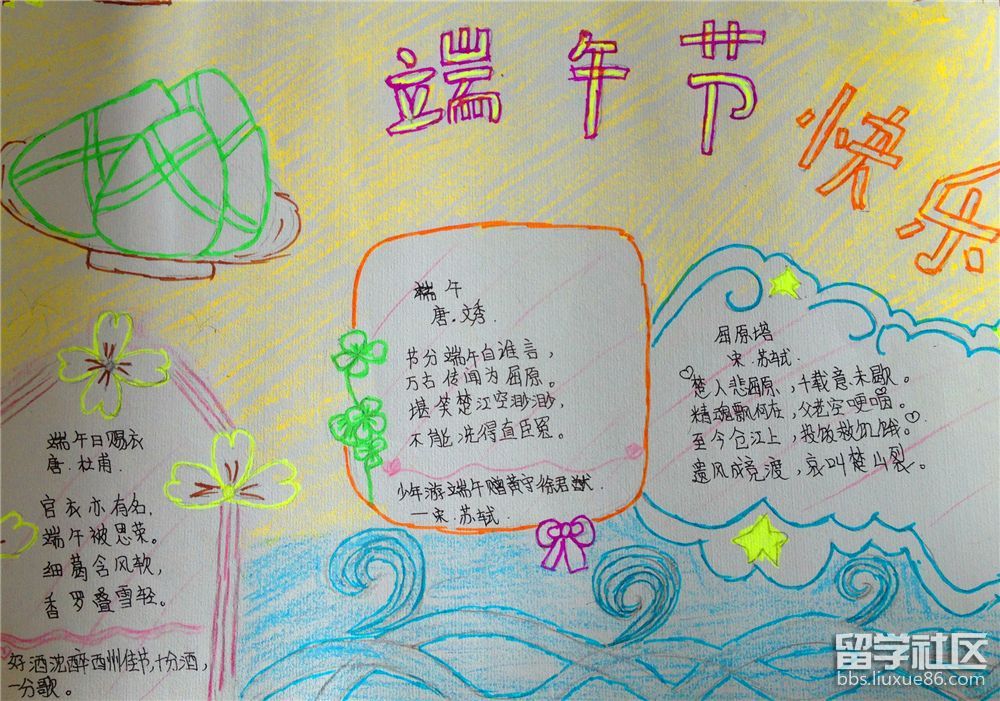 端午节
快乐
端午
唐·文秀
节分端午自谁言，
万古传闻为屈原。
堪笑楚江空渺渺，
不能洗得直臣冤。
少年游端午赠黄守徐君猷
—宋·苏轼
屈原塔
宋·苏轼
楚人悲屈原，千载意未歇。
精魂飘何在，父老空哽咽。
至今仓江上，投饭救饥饿。
遗风成竞渡，哀叫楚山裂。
端午日赐衣
唐·杜甫
官衣亦有名，
端午被恩荣。
细葛含风软，
香罗叠雪轻。
好酒沈醉酉州佳节，十分酒，
一分歌。
留学社区
bbs.liuxue86.com